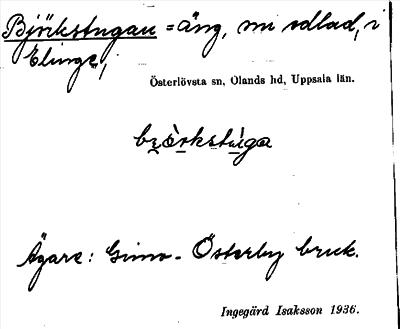 Björkstugan = äng, nu odlad, i
Elinge,
Österlövsta sn, Olands hd, Uppsala län.
bjö̀rkstùga
Ägare: Gimo-Österby bruk.
Ingegärd Isaksson 1936.